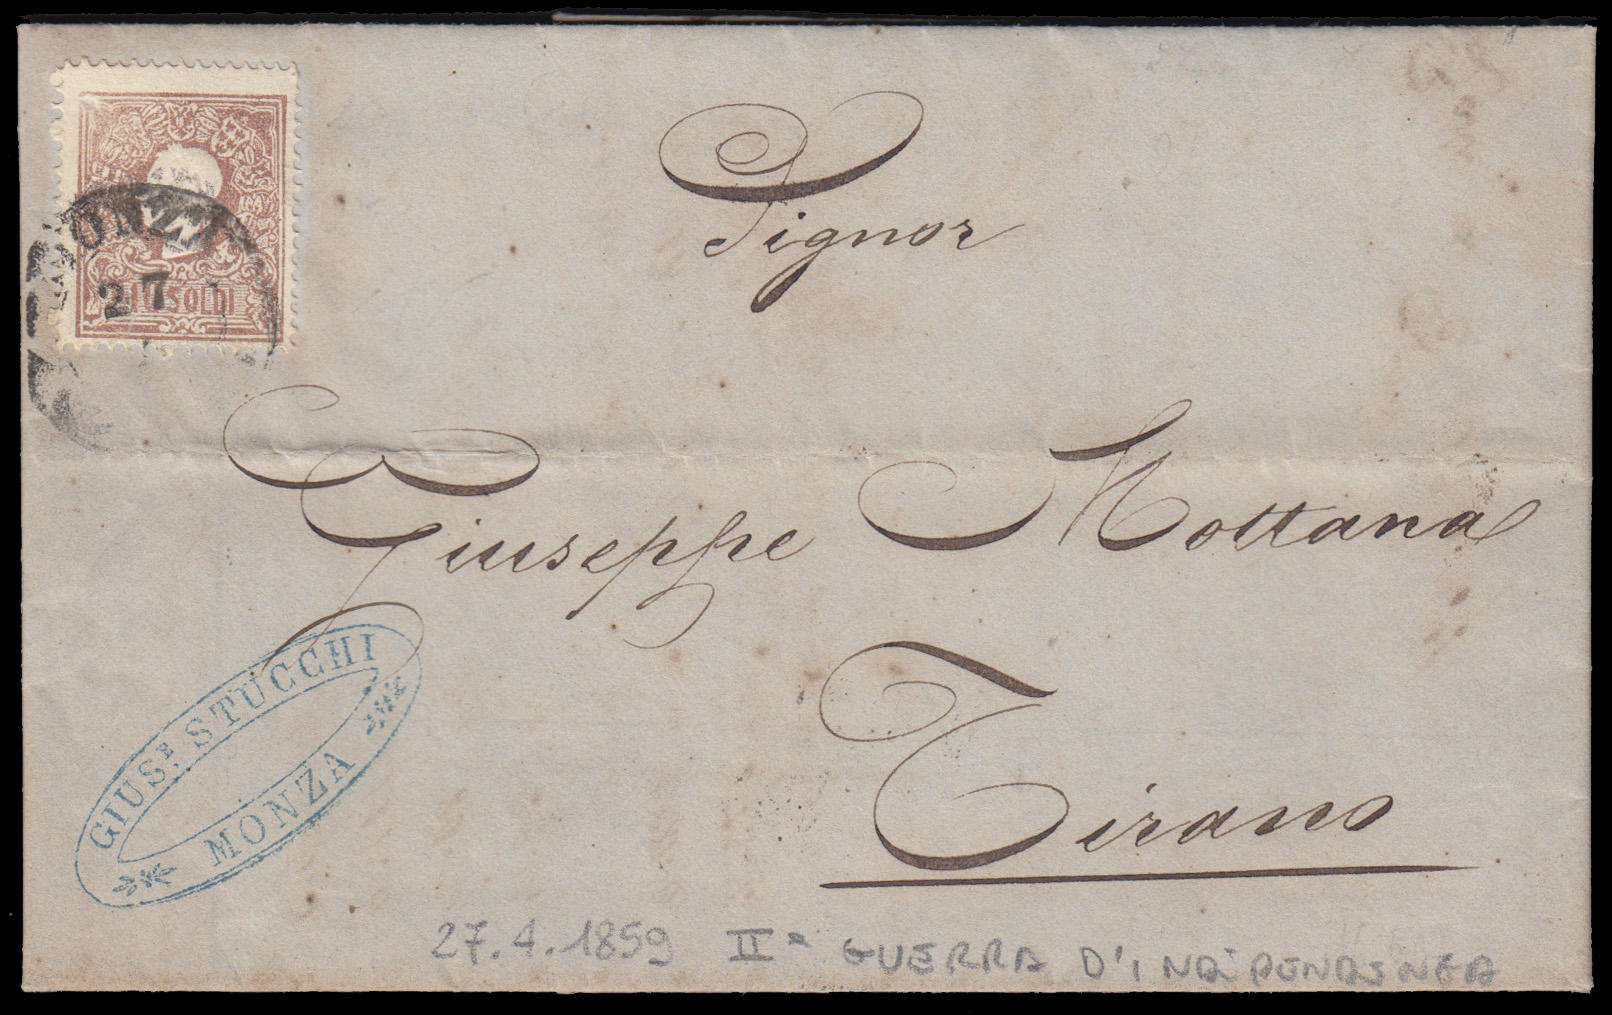 MONZA
27
10 SOLDI
Signor
Giuseppe Mottana
Tirano
GIUSE. STUCCHI
MONZA
27.4.1859 IIª GUERRA D'INDIPENDENZA